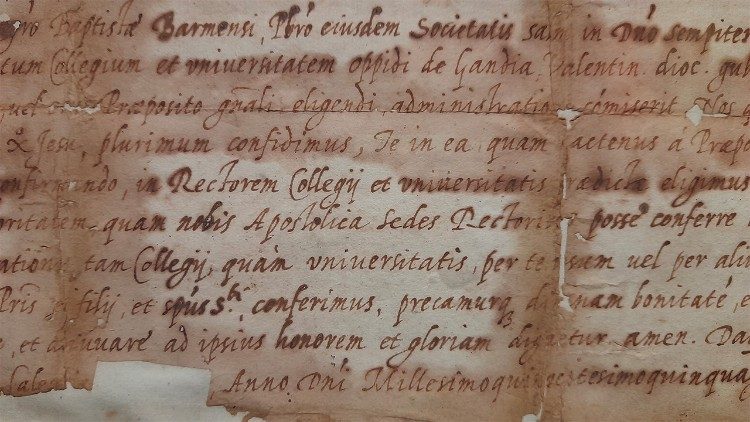 Baptistæ Barmensi, Pb̃ro eiusdem Societatis salt̃ in Dño sempiter
tum Collegium et vniuersitatem oppidi de Gandia, Valentin. dioc. gub
vel Præposito gñali eligendi, administration com̃iserit Nos
Jesu, plurimum confidimus, Te in ea quam actenus á Præpo
onfirmando, in Rectorem Collegij et vniuersitatis rædictæ eligimus
oritatem quam nobis Apostolica Sedes Rectori posse conferre
ation tam Collegij, quàm vniuersitatis, per te vel per ali
Pris filij, et spũs S.ti conferimus, precamurq3 bonitatẽ, e
et adiuuare ad ipsius honorem et gloriam dignetur amen. Da
Anno Dñi Millesimoquingentesimoquinqua